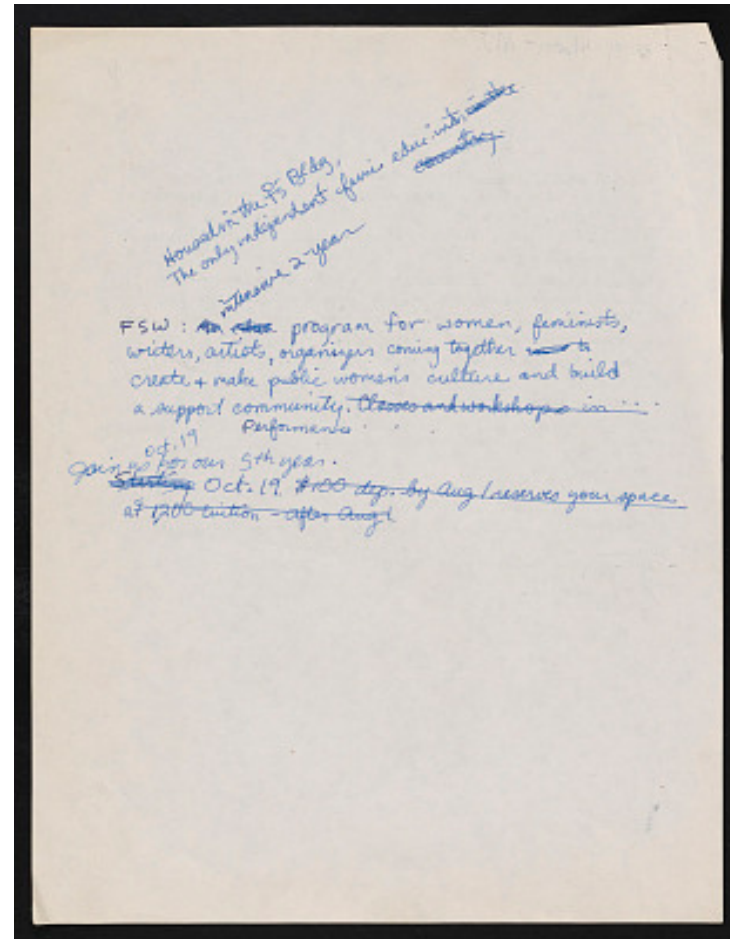 Housed in the Fs Bldg,
The only independent femi educ. inst. in the
country
intensive 2-year
FSW: An program for women, feminists,
writers, artists, organizers coming together to
create + make public women's culture and build
a support community. Classes and workshops in ...
Performance
Oct. 19
Join us for our 9th year.
Starting Oct. 19. $100 dep. by Aug 1 reserves your space
at 1,200 tuition - after Aug 1